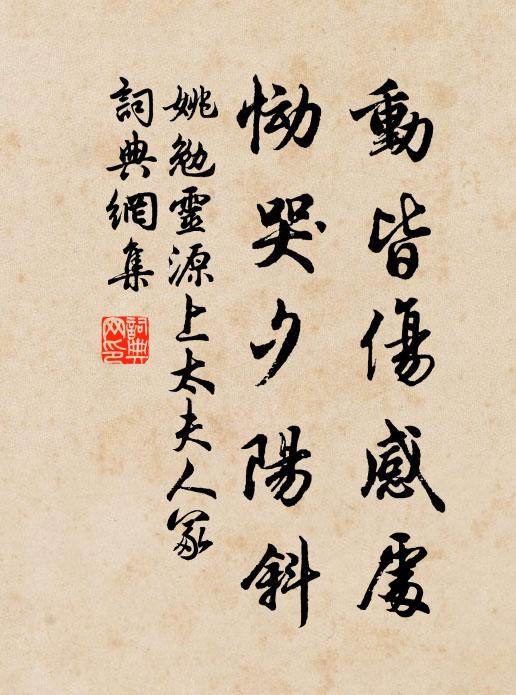 動皆傷感處
慟哭夕陽斜
姚勉靈源上太夫人冢
詞典網集
詞典網印